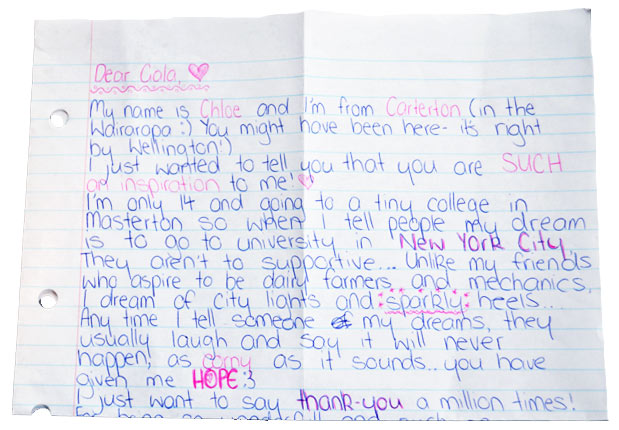 Dear Cola, ♡
My name is Chloe and I'm from Carterton (in the
Wairarapa :) You might have been here- it's right
by Wellington!)
I just wanted to tell you that you are SUCH
an inspiration to me! ♡
I'm only 14 and going to a tiny college in
Masterton so when I tell people my dream
is to go to university in NEW YORK CITY,
They aren't to supportive... Unlike my friends
who aspire to be dairy farmers and mechanics,
I dream of city lights and sparkly heels...
Any time I tell someone of my dreams, they
usually laugh and say it will never
happen! as corny as it sounds.. you have
given me HOPE :3
I just want to say thank-you a million times!